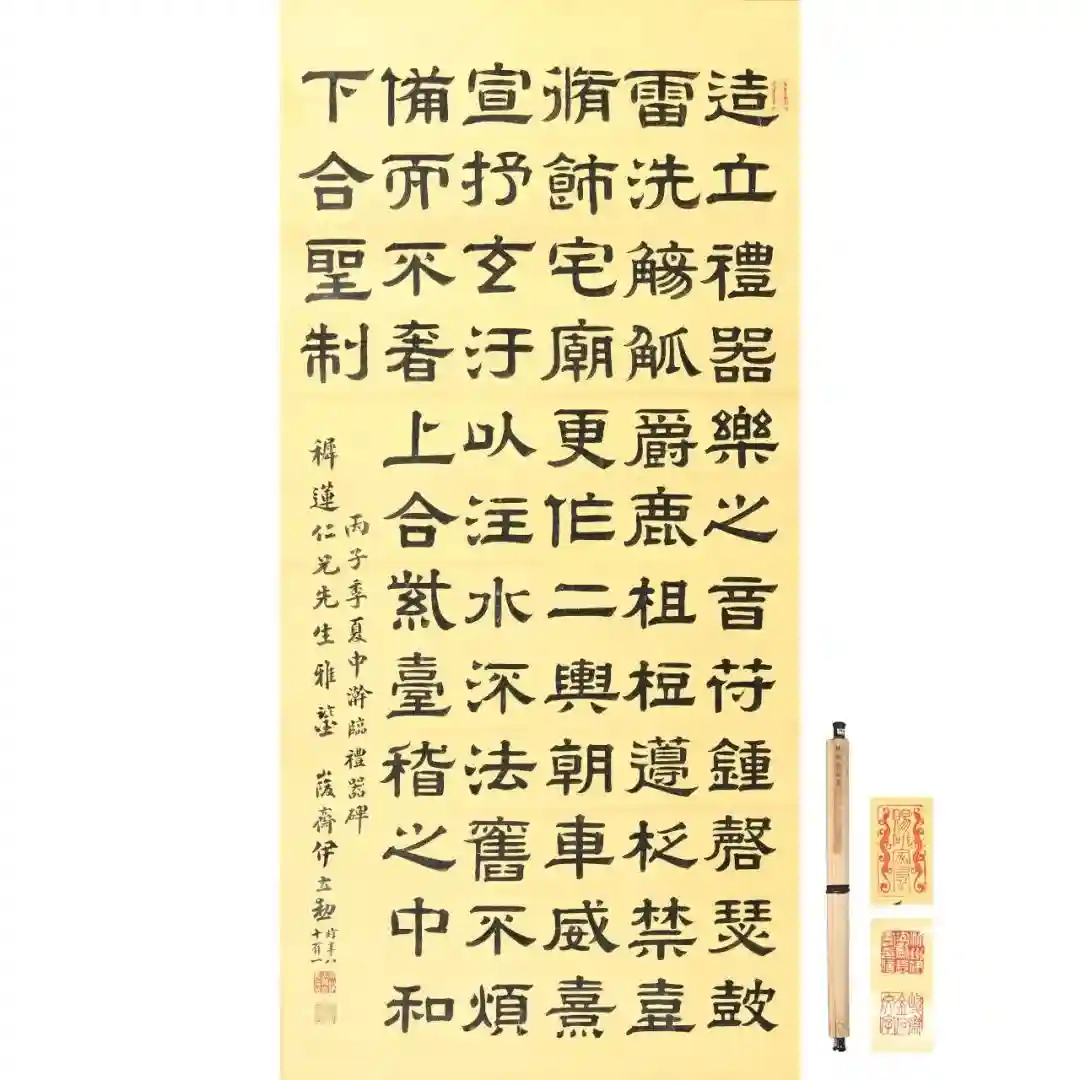 造立禮器樂之音苻鍾磬瑟鼓
雷洗觴觚爵鹿柤梪籩柉禁壺
脩飾宅廟更作二輿朝車威熹
宣抒玄汙以注水流法舊不煩
備而不奢上合紫臺稽之中和
下合聖制
丙子季夏中澣臨禮器碑
穉蓮仁兄先生雅鑒 蕿齋伊立勳時年八十有一